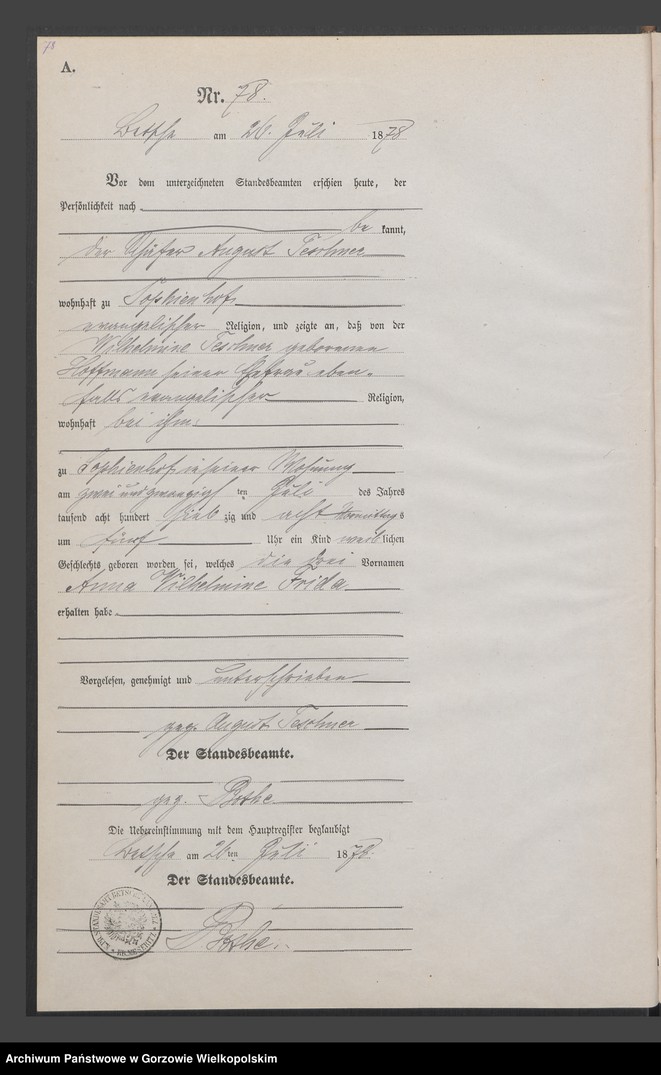 78
A.
Nr. 78.
Betsche am 26. Juli 1878
Vor dem unterzeichneten Standesbeamten erschien heute, der
Persönlichkeit nach
be kannt,
der Schäfer August Teschner
wohnhaft zu Sophienhof
evangelischer Religion, und zeigte an, daß von der
Wilhelmine Teschner geborenen
Hoffmann seiner Ehefrau eben-
falls evangelischer Religion,
wohnhaft bei ihm
zu Sophienhof in seiner Wohnung
am zwei und zwanzigsten Juli des Jahres
tausend acht hundert sieb zig und acht Vormittags
um fünf Uhr ein Kind weiblichen
Geschlechts geboren worden sei, welches die drei Vornamen
Anna Wilhelmine Frida
erhalten habe
Vorgelesen, genehmigt und unterschrieben
gez. August Teschner
Der Standesbeamte.
gez.
Die Uebereinstimmung mit dem Hauptregister beglaubigt
Betsche am 26ten Juli 1878.
Der Standesbeamte.
Archiwum Państwowe w Gorzowie Wielkopolskim